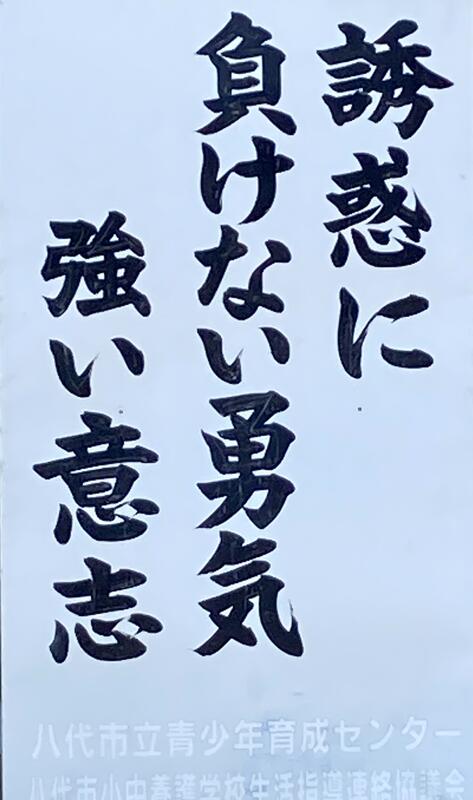 誘惑に
負けない勇気
強い意志
八代市立青少年育成センター
八代市小中養護学校生活指導連絡協議会